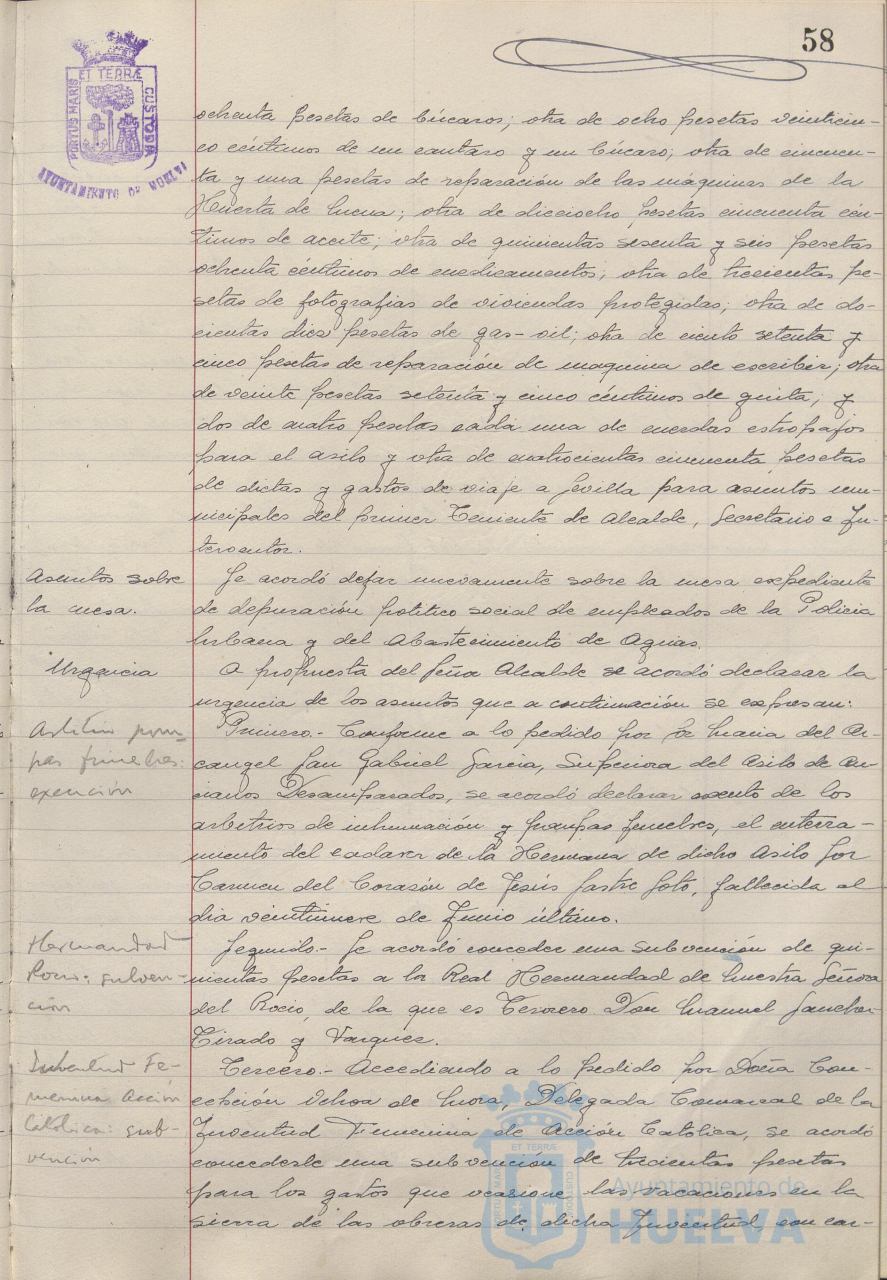 58
PORTUS MARIS ET TERRÆ CUSTODIA
AYUNTAMIENTO DE HUELVA
ochenta pesetas de búcaros; otra de ocho pesetas veinticin-
co céntimos de un cantaro y un búcaro; otra de cincuen-
ta y una pesetas de reparación de las máquinas de la
Huerta de Mena; otra de dieciocho pesetas cincuenta cén-
timos de aceite; otra de quinientas sesenta y seis pesetas
ochenta céntimos de medicamentos; otra de trecientas pe-
setas de fotografias de viviendas protegidas; otra de do-
cientas diez pesetas de gas-oil; otra de ciento setenta y
cinco pesetas de reparación de maquina de escribir; otra
de veinte pesetas setenta y cinco céntimos de guita; y
dos de cuatro pesetas cada una de cuerdas estropajos
para el asilo y otra de cuatrocientas cincuenta pesetas
de dietas y gastos de viaje a Sevilla para asuntos mu-
nicipales del primer Teniente de Alcalde, Secretario e In-
terventor.
Asuntos sobre
la mesa.
Se acordó dejar nuevamente sobre la mesa expediente
de depuración politico social de empleados de la Policia
Urbana y del Abastecimiento de Aguas.
Urgencia
A propuesta del Señor Alcalde se acordó declarar la
urgencia de los asuntos que a continuación se expresan:
Arbitrio pom-
pas fúnebres:
exención
Primero.- Conforme a lo pedido por Sor Maria del Ar-
cangel San Gabriel Garcia, Superiora del Asilo de An-
cianos Desamparados, se acordó declarar exento de los
arbitrios de inhumación y pompas fúnebres, el enterra-
miento del cadaver de la Hermana de dicho Asilo Sor
Carmen del Corazón de Jesús Sastre Soto, fallecida el
dia veintinueve de Junio último.
Hermandad
Rocio: subven-
ción
Segundo.- Se acordó conceder una subvención de qui-
nientas pesetas a la Real Hermandad de Nuestra Señora
del Rocio, de la que es Tesorero Don Manuel Sanchez-
Tirado y Vazquez.
Juventud Fe-
menina Acción
Católica: sub-
vención
Tercero.- Accediendo a lo pedido por Doña Con-
cepción Ochoa de Mora, Delegada Comarcal de la
Juventud Femenina de Acción Católica, se acordó
concederle una subvención de trecientas pesetas
para los gastos que ocasione las vacaciones en la
sierra de las obreras de dicha Juventud, con car-
Ayuntamiento de
HUELVA